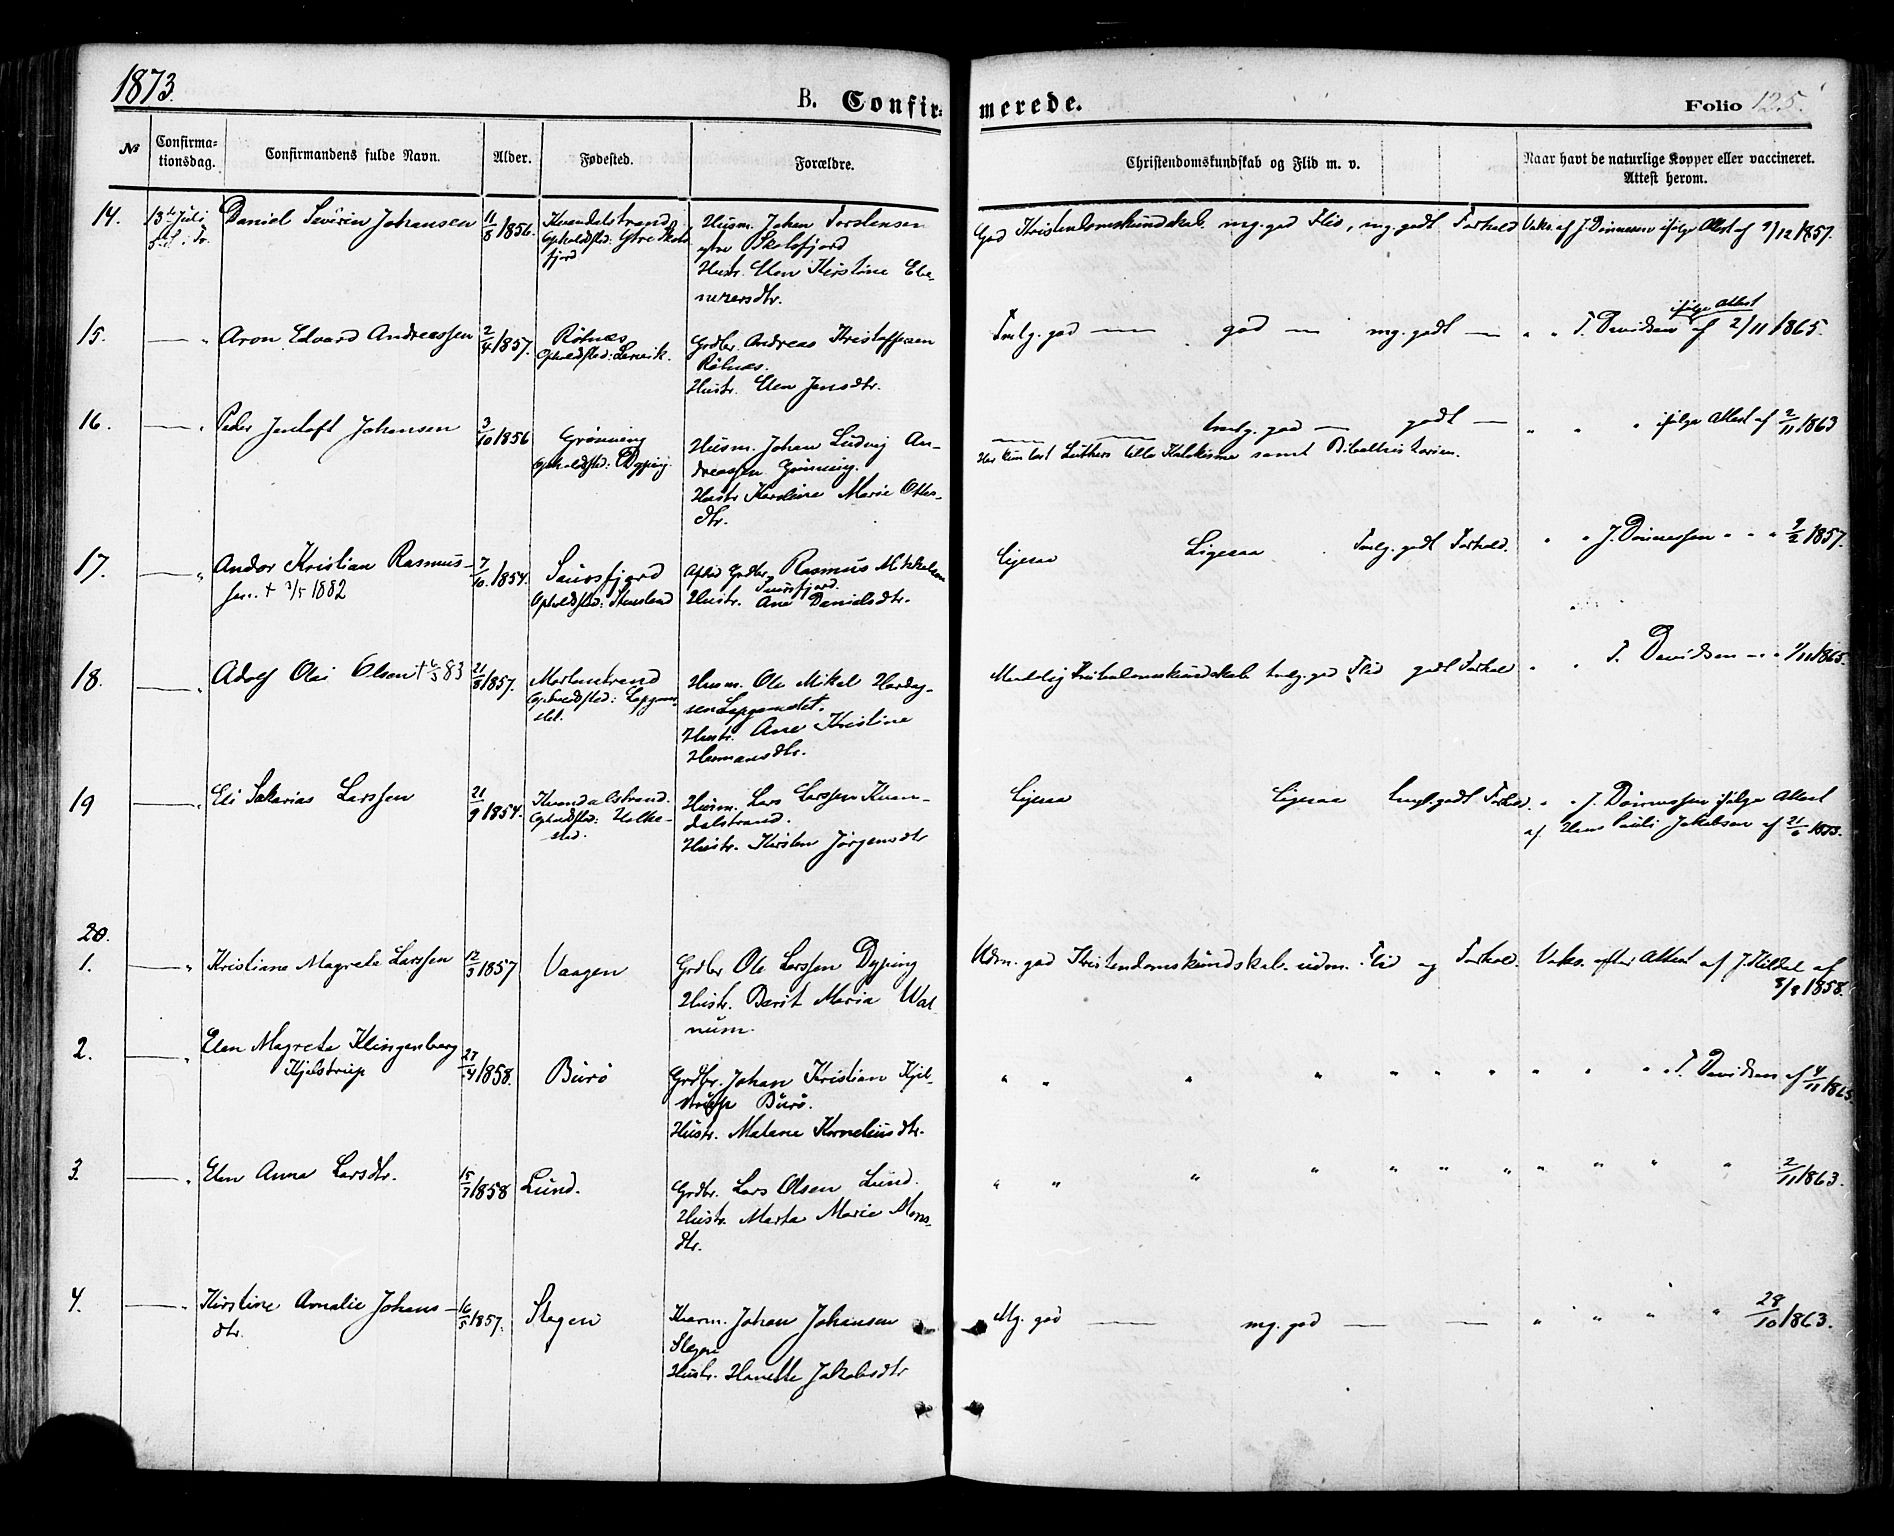 1873.
B. Confir-
merede.
Folio 125.
No
Confirma-
tionsdag.
Confirmandens fulde Navn.
Alder.
Fødested.
Forældre.
Christendomskundskab og Flid m. v.
Naar havt de naturlige Kopper eller vaccineret.
Attest herom.
14.
13de Juli
Daniel Severin Johansen
11/8 1856.
Kvandalstrand
Opholdsted: Ytre Skots
fjord
Husm. Johan Torstensen
ytre Skotsfjord
Hustr. Elen Kirstine Ebe-
nezersdtr.
God Kristendomskundskab mg. god Flid, mg. godt Forhold
Vaks. af J. Dønnessen ifølge Attest af 9/12 1857.
15.
— "
Aron Edvard Andreassen
2/4 1857.
Rølnæs
Opholdsted: Lervik.
Grdbr. Andreas Kristoffersen
Rølnæs.
Hustr. Elen Jensdtr.
Temlg. god — god — mg. godt —
" " T. Davidsen ifølge Attest
af 2/11 1865.
16.
— "
Peder Jentoft Johansen
3/10 1856
Grønning
Opholdsted: Dyping.
Husm. Johan Ludvig An-
dreassen Grønning.
Hustr. Karoline Marie Ottes-
dtr.
— — temlg. god — godt —
Har kun læst Luthers lille Katekisme samt Bibelhistorien.
" " " ifølge Attest af 2/11 1863
17.
— "
Andor Kristian Rasmus-
sen. † 3/5 1882
7/10 1854.
Saursfjord
Opholdsted: Stensland
Afdød Grdbr. Rasmus Mikkelsen
Saursfjord.
Hustr. Ane Danielsdtr.
Ligesaa Ligesaa Temlg. godt Forhold.
" " J. Dønnessen " " " 9/2 1857.
18.
— "
Adolf Olai Olsen † 83
21/3 1857.
Opholdsted: Løpgams-
let.
Husm. Ole Mikal Hardag-
sen
Hustr. Ane Kristine
Hermansdtr.
Maadelig Kristendomskundskab temlg. god Flid godt Forhold
" " T. Davidsen " " " 1/11 1865.
19
— "
Eli Sakarias Larssen
21/9 1854.
Kvandalstrand.
Opholdsted: Holke-
stad.
Husm. Lars Larssen Kvan-
dalstrand.
Hustr. Kirsten Jørgensdtr
Ligesaa Ligesaa temlg. godt Forhold.
" " J. Dønnessen ifølge Attest
af Hans Pauli Jakobsen af 21/6 1873.
20.
1.
— "
Kristiane Magreta Larssen
12/3 1857
Vaagen
Grdbr Ole Larssen Dyping
Hustr. Berit Maria Wal-
num.
Udm. god Kristendomskundskab. udm. Flid og Forhold.
Vaks. efter Attest af J. Kildal af
8/8 1858.
2.
— "
Elen Magreta Klingenberg
Kjelstrup
27/4 1858.
Burø
Grdbr. Johan Kristian Kjel-
strup Burø.
Hustr. Malene Korneliusdtr.
" " " " " " " " " "
" T. Davidsen af 4/11 1865.
3.
— "
Elen Anna Larsdtr.
15/7 1858
Lund.
Grdbr. Lars Olsen Lund.
Hustr. Marta Marie Mons-
dtr.
" " " " " " " " " " "
2/11 1863.
4.
— "
Kirstine Amalie Johans-
dtr.
16/5 1857.
Stegen
Kvarm. Johan Johansen
Stegen
Hustr. Hanette Jakobsdtr
Mg. god — mg. god — —
" " " " 28/10 1863.